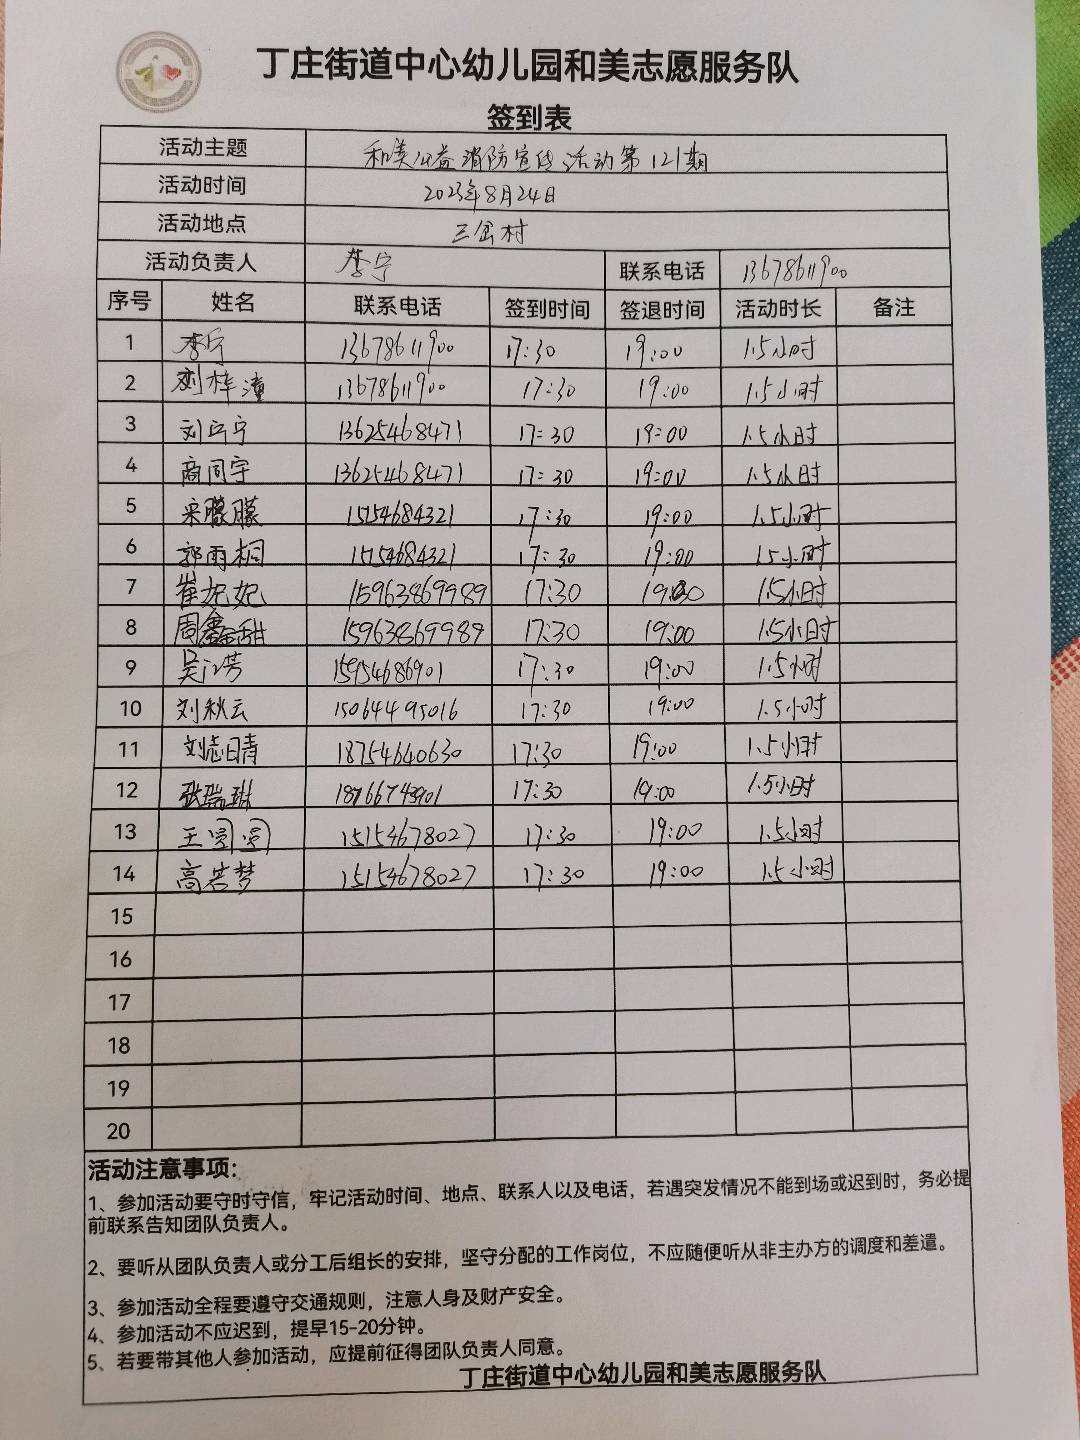 丁庄街道中心幼儿园和美志愿服务队
签到表
活动主题 和美公益消防宣传活动第121期
活动时间 2023年8月24日
活动地点 三岔村
活动负责人 李宁 联系电话 13678611900
序号 姓名 联系电话 签到时间 签退时间 活动时长 备注
1 李宁 13678611900 17:30 19:00 1.5小时
2 刘梓潼 13678611900 17:30 19:00 1.5小时
3 刘宁宁 13625468471 17:30 19:00 1.5小时
4 商同宇 13625468471 17:30 19:00 1.5小时
5 朦朦 15154684321 17:30 19:00 1.5小时
6 郭雨桐 15154684321 17:30 19:00 1.5小时
7 崔妮妮 15963869989 17:30 19:00 1.5小时
8 周鑫甜 15963869989 17:30 19:00 1.5小时
9 吴江芳 15954686901 17:30 19:00 1.5小时
10 刘秋云 15064495016 17:30 19:00 1.5小时
11 刘志晴 18754640630 17:30 19:00 1.5小时
12 张瑞琳 17:30 19:00 1.5小时
13 王圆圆 15154678027 17:30 19:00 1.5小时
14 高若梦 15154678027 17:30 19:00 1.5小时
15
16
17
18
19
20
活动注意事项：
1、参加活动要守时守信，牢记活动时间、地点、联系人以及电话，若遇突发情况不能到场或迟到时，务必提
前联系告知团队负责人。
2、要听从团队负责人或分工后组长的安排，坚守分配的工作岗位，不应随便听从非主办方的调度和差遣。
3、参加活动全程要遵守交通规则，注意人身及财产安全。
4、参加活动不应迟到，提早15-20分钟。
5、若要带其他人参加活动，应提前征得团队负责人同意。
丁庄街道中心幼儿园和美志愿服务队